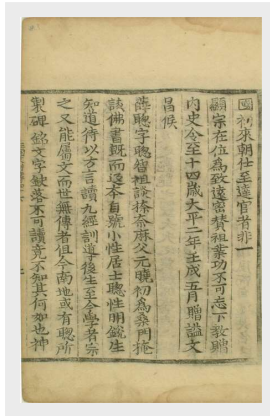 國初來朝仕至達官者非一
顯宗在位爲致遠密賛祖業功不可忘下敎贈
內史令至十四歲大平二年壬戌五月贈謚文
昌侯
薛聰字聰智祖談捺奈麻父元曉初爲桑門掩
該佛書旣而返本自號小性居士聰性明銳生
知道待以方言讀九經訓導後生至今學者宗
之又能屬文而世無傳者但今南地或有聰所
製碑銘文字缺落不可讀竟不知其何如也神